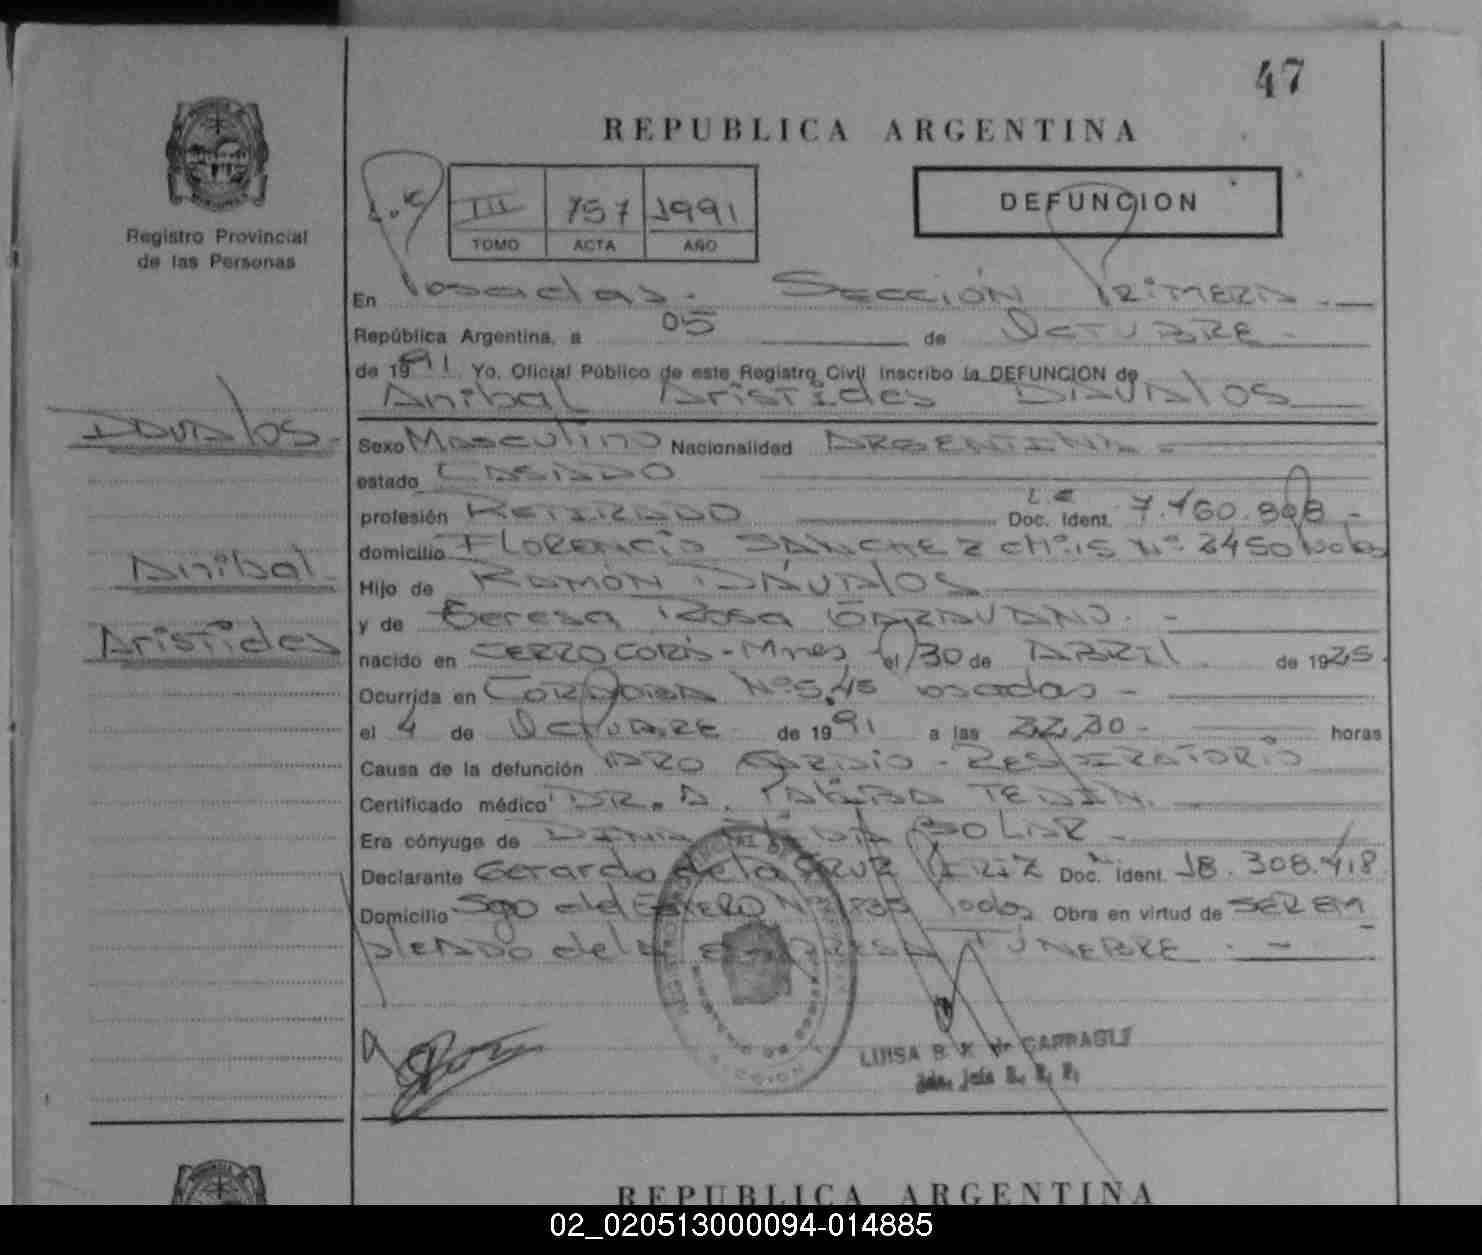 47
REPUBLICA ARGENTINA
Registro Provincial
de las Personas
III 757 1991
TOMO ACTA AÑO
DEFUNCION
En Posadas. - Sección Primera. -
República Argentina, a 05 de Octubre -
de 1991. Yo, Oficial Público de este Registro Civil inscribo la DEFUNCION de
Anibal Aristides Davalos
Davalos. -
Anibal
Aristides
Sexo Masculino Nacionalidad Argentina -
estado Casado
profesión Retirado Doc. Ident. L E 7.460.898 -
domicilio Florencio Sanchez ch. 15 Nº 2450 Podas
Hijo de Ramón Dávalos
y de Teresa Rosa . -
nacido en Cerro Corá - Mnes el 30 de Abril de 1925.
Ocurrida en Cordoba Nº 545 Posadas -
el 4 de Octubre - de 1991 a las 22,30 - horas
Causa de la defunción Paro Cardio - Respiratorio
Certificado médico Dr. A.
Era cónyuge de Solar -
Declarante Gerardo de la Cruz Doc. Ident. 18.308.418
Domicilio Sgo del Estero Nº Podas Obra en virtud de ser em
pleado de la empresa Funebre . -
LUISA B. K. de
REPUBLICA ARGENTINA
02_020513000094-014885